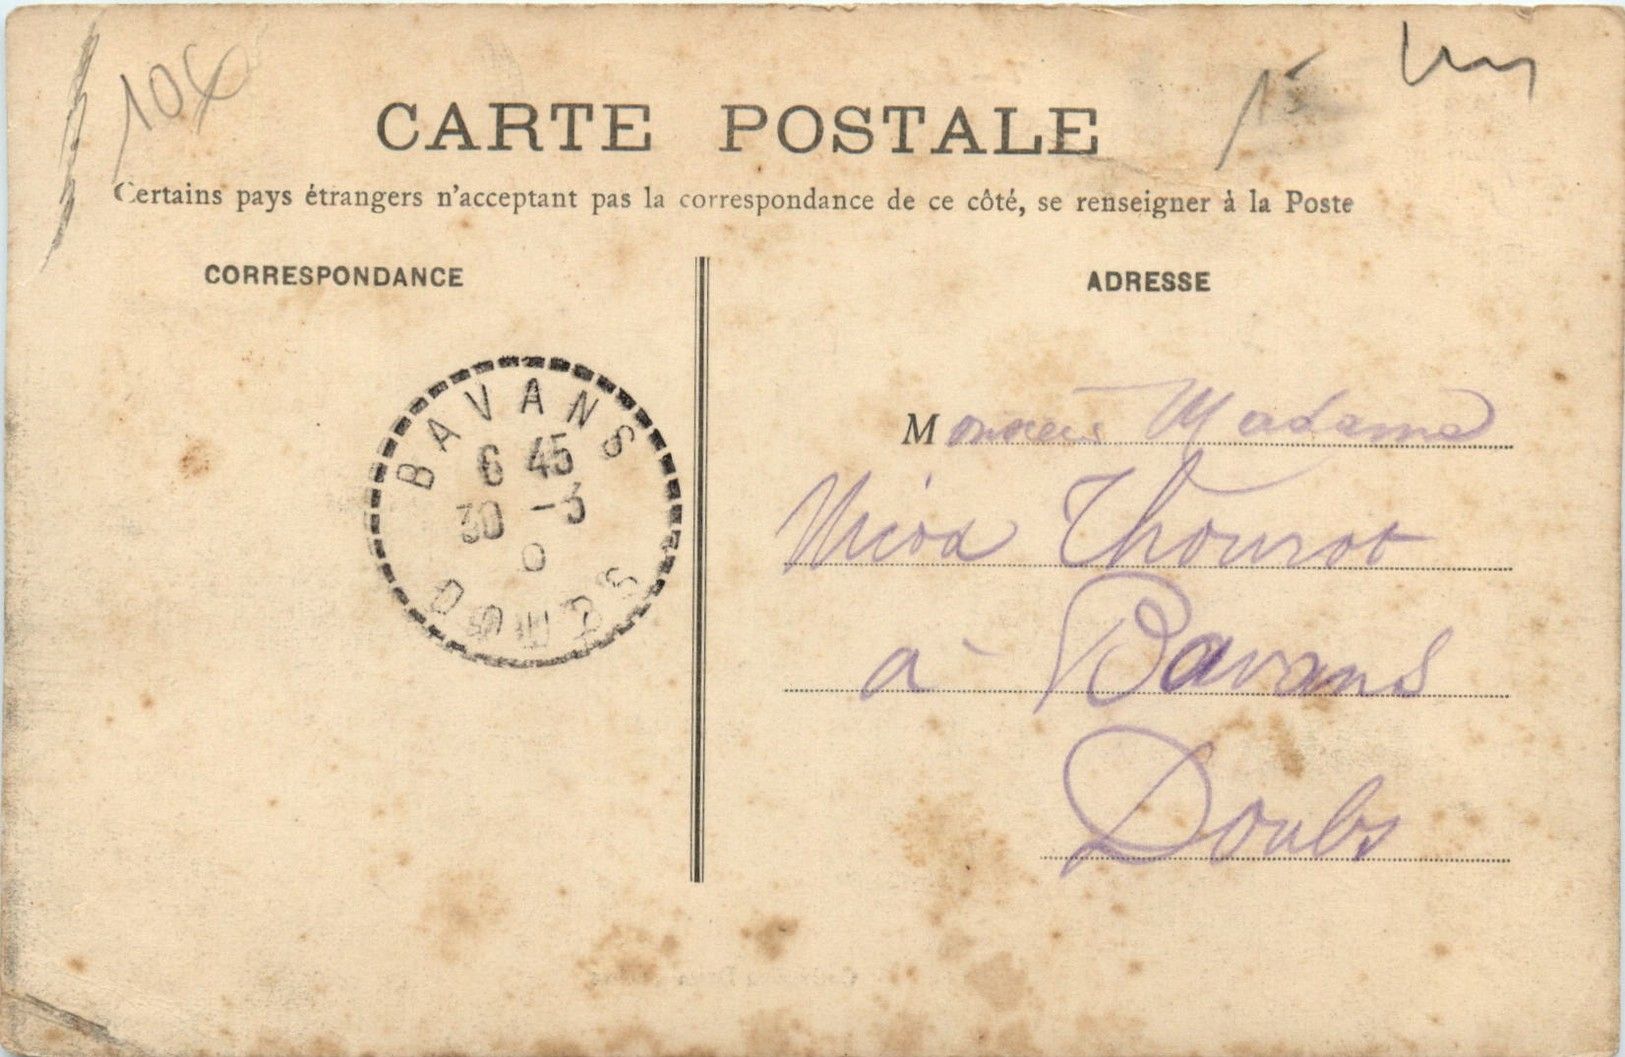 106
15
CARTE POSTALE
Certains pays étrangers n'acceptant pas la correspondance de ce côté, se renseigner à la Poste
CORRESPONDANCE
ADRESSE
BAVANS
6 45
30 -3
0
DOUBS
Monsieur Madame
Nicod Thourot
à Bavans
Doubs